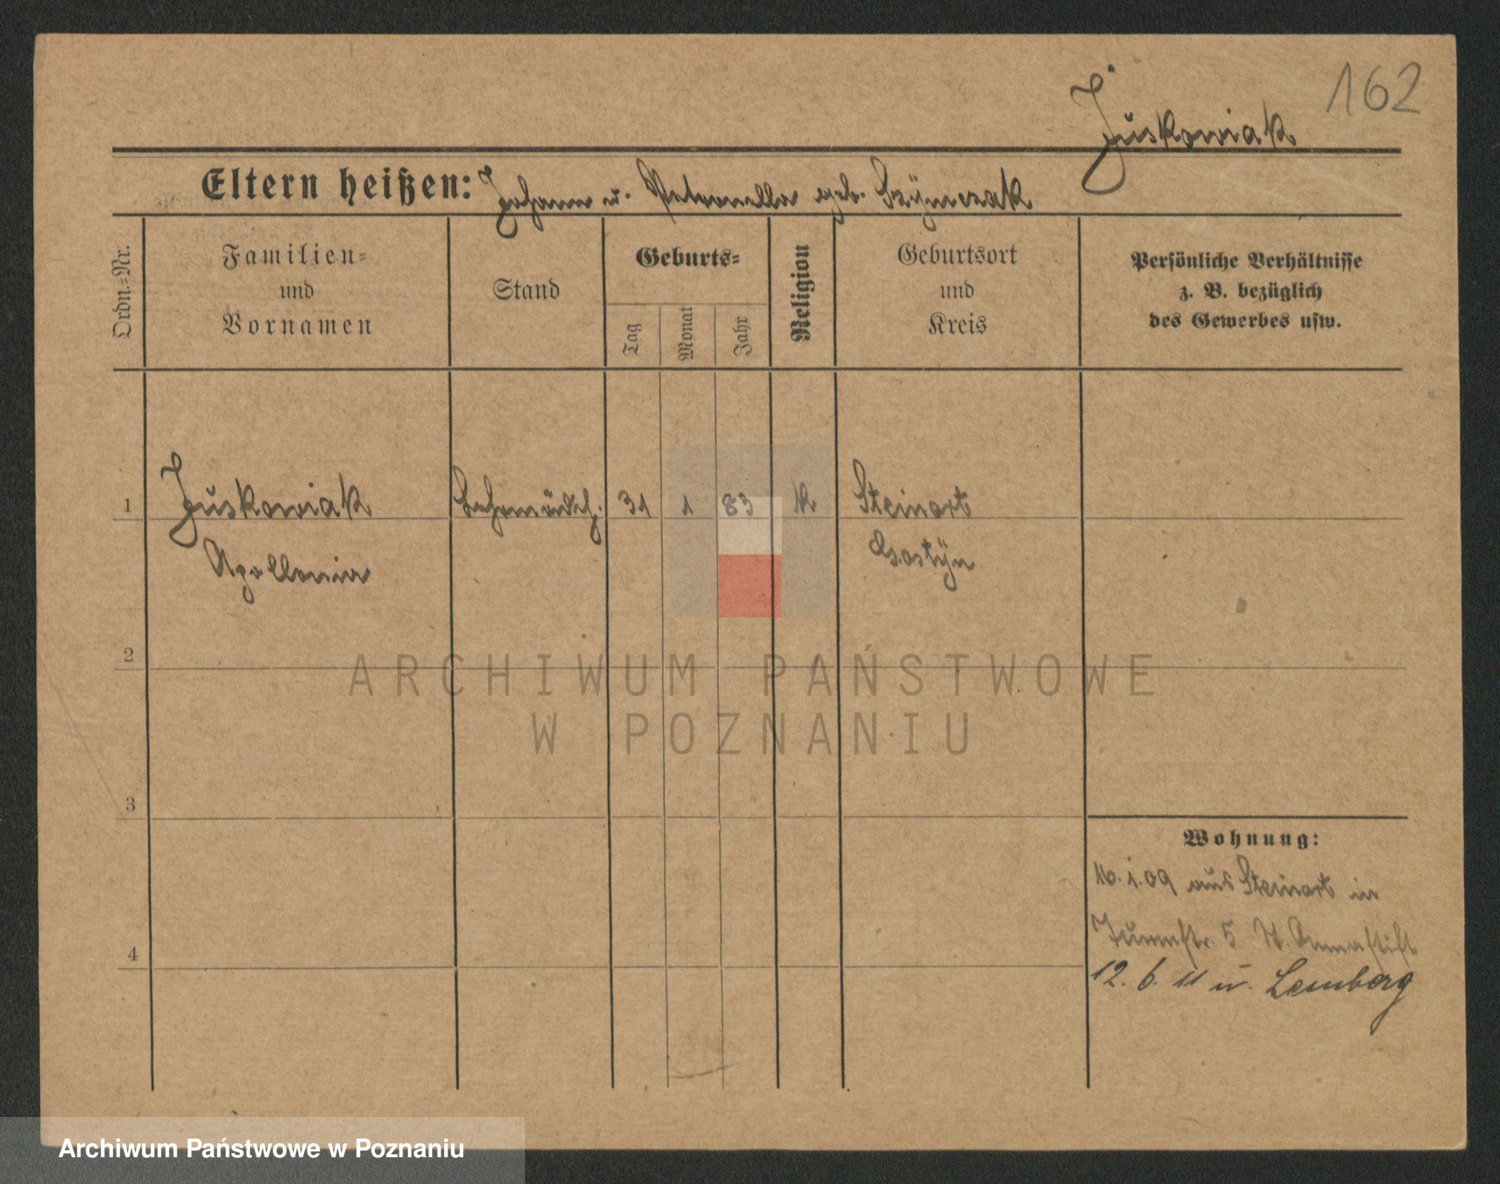 162
Juskowiak
Eltern heißen: Johann u. Petronella geb. Szymczak
Ordn.-Nr.
Familien-
und
Vornamen
Stand
Geburts-
Tag
Monat
Jahr
Religion
Geburtsort
und
Kreis
Persönliche Verhältnisse
z. B. bezüglich
des Gewerbes usw.
1 Juskowiak 31 1 83 k Steinort
Apollonia Gostyn
2
3
4
Wohnung:
16.1.09 aus Steinort in
5 St. Annastift
12.6.11 n. Lemberg
ARCHIWUM PAŃSTWOWE
W POZNANIU
Archiwum Państwowe w Poznaniu